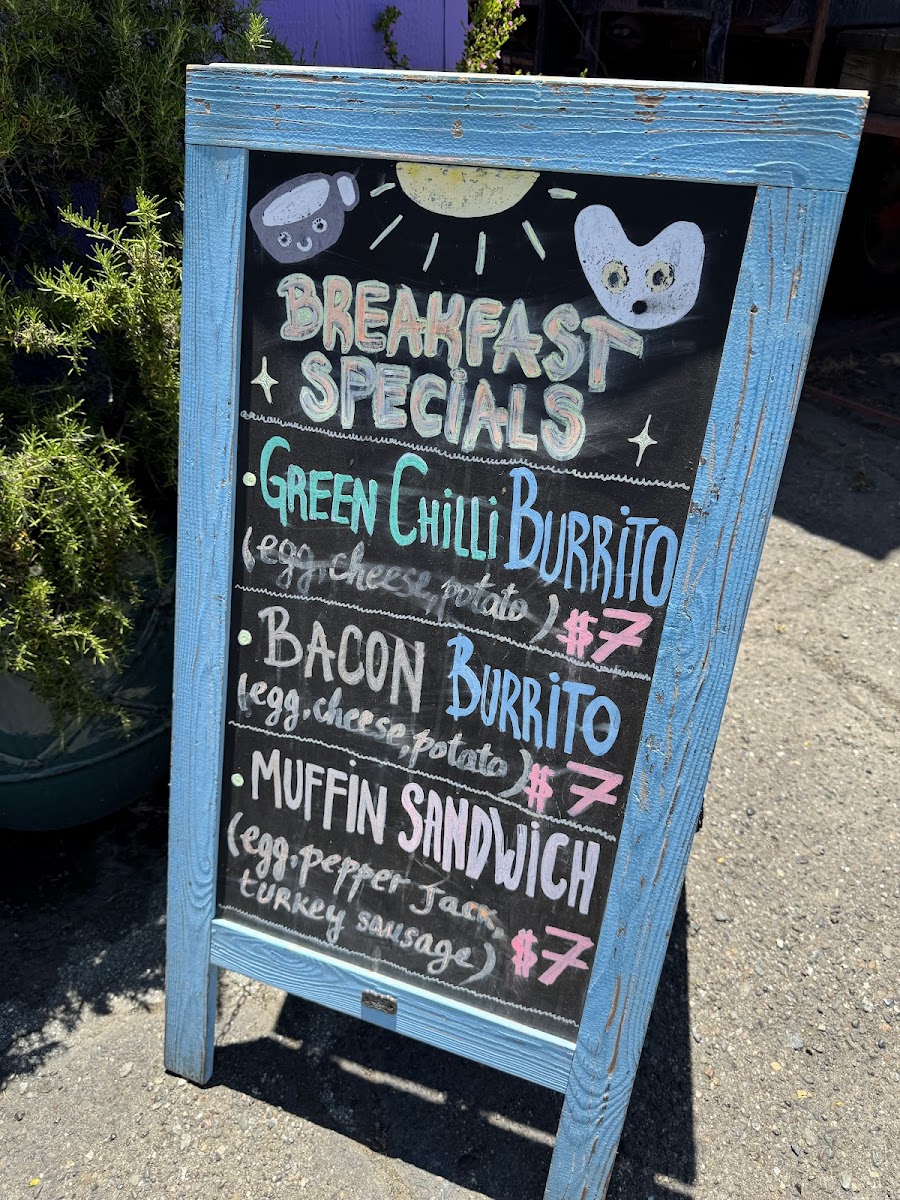 BREAKFAST
SPECiALS
GREEN CHiLLi BURRiTO
(egg, cheese, potato)
$7
BACON BURRiTO
(egg, cheese, potato)
$7
MUFFiN SANDWiCH
(egg, pepper Jack,
turkey sausage)
$7